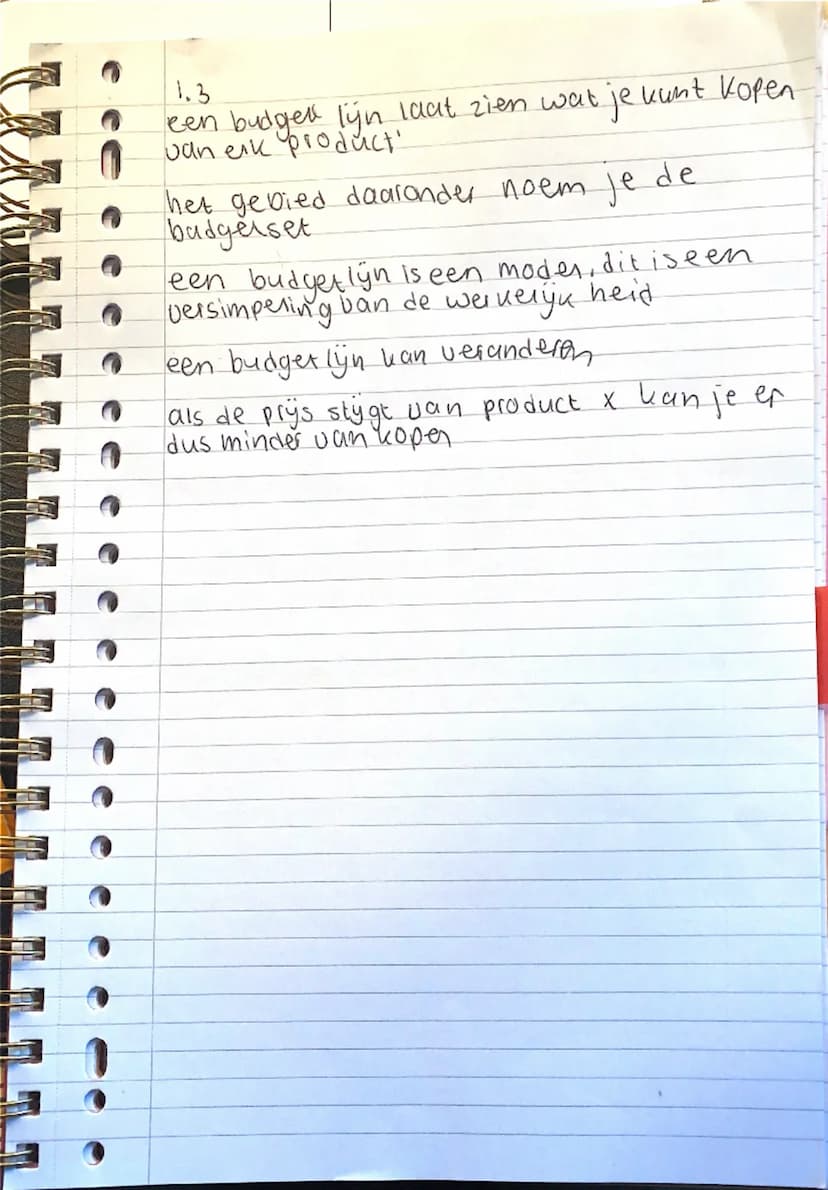 1.3
een budget lijn laat zien wat je kunt kopen
van elk product
het gebied daaronder noem je de
budgetset
een budgetlijn is een model, dit is een
versimpeling van de werkelijk heid
een budget lijn kan veranderen
als de prijs stijgt van product x kan je er
dus minder van kopen